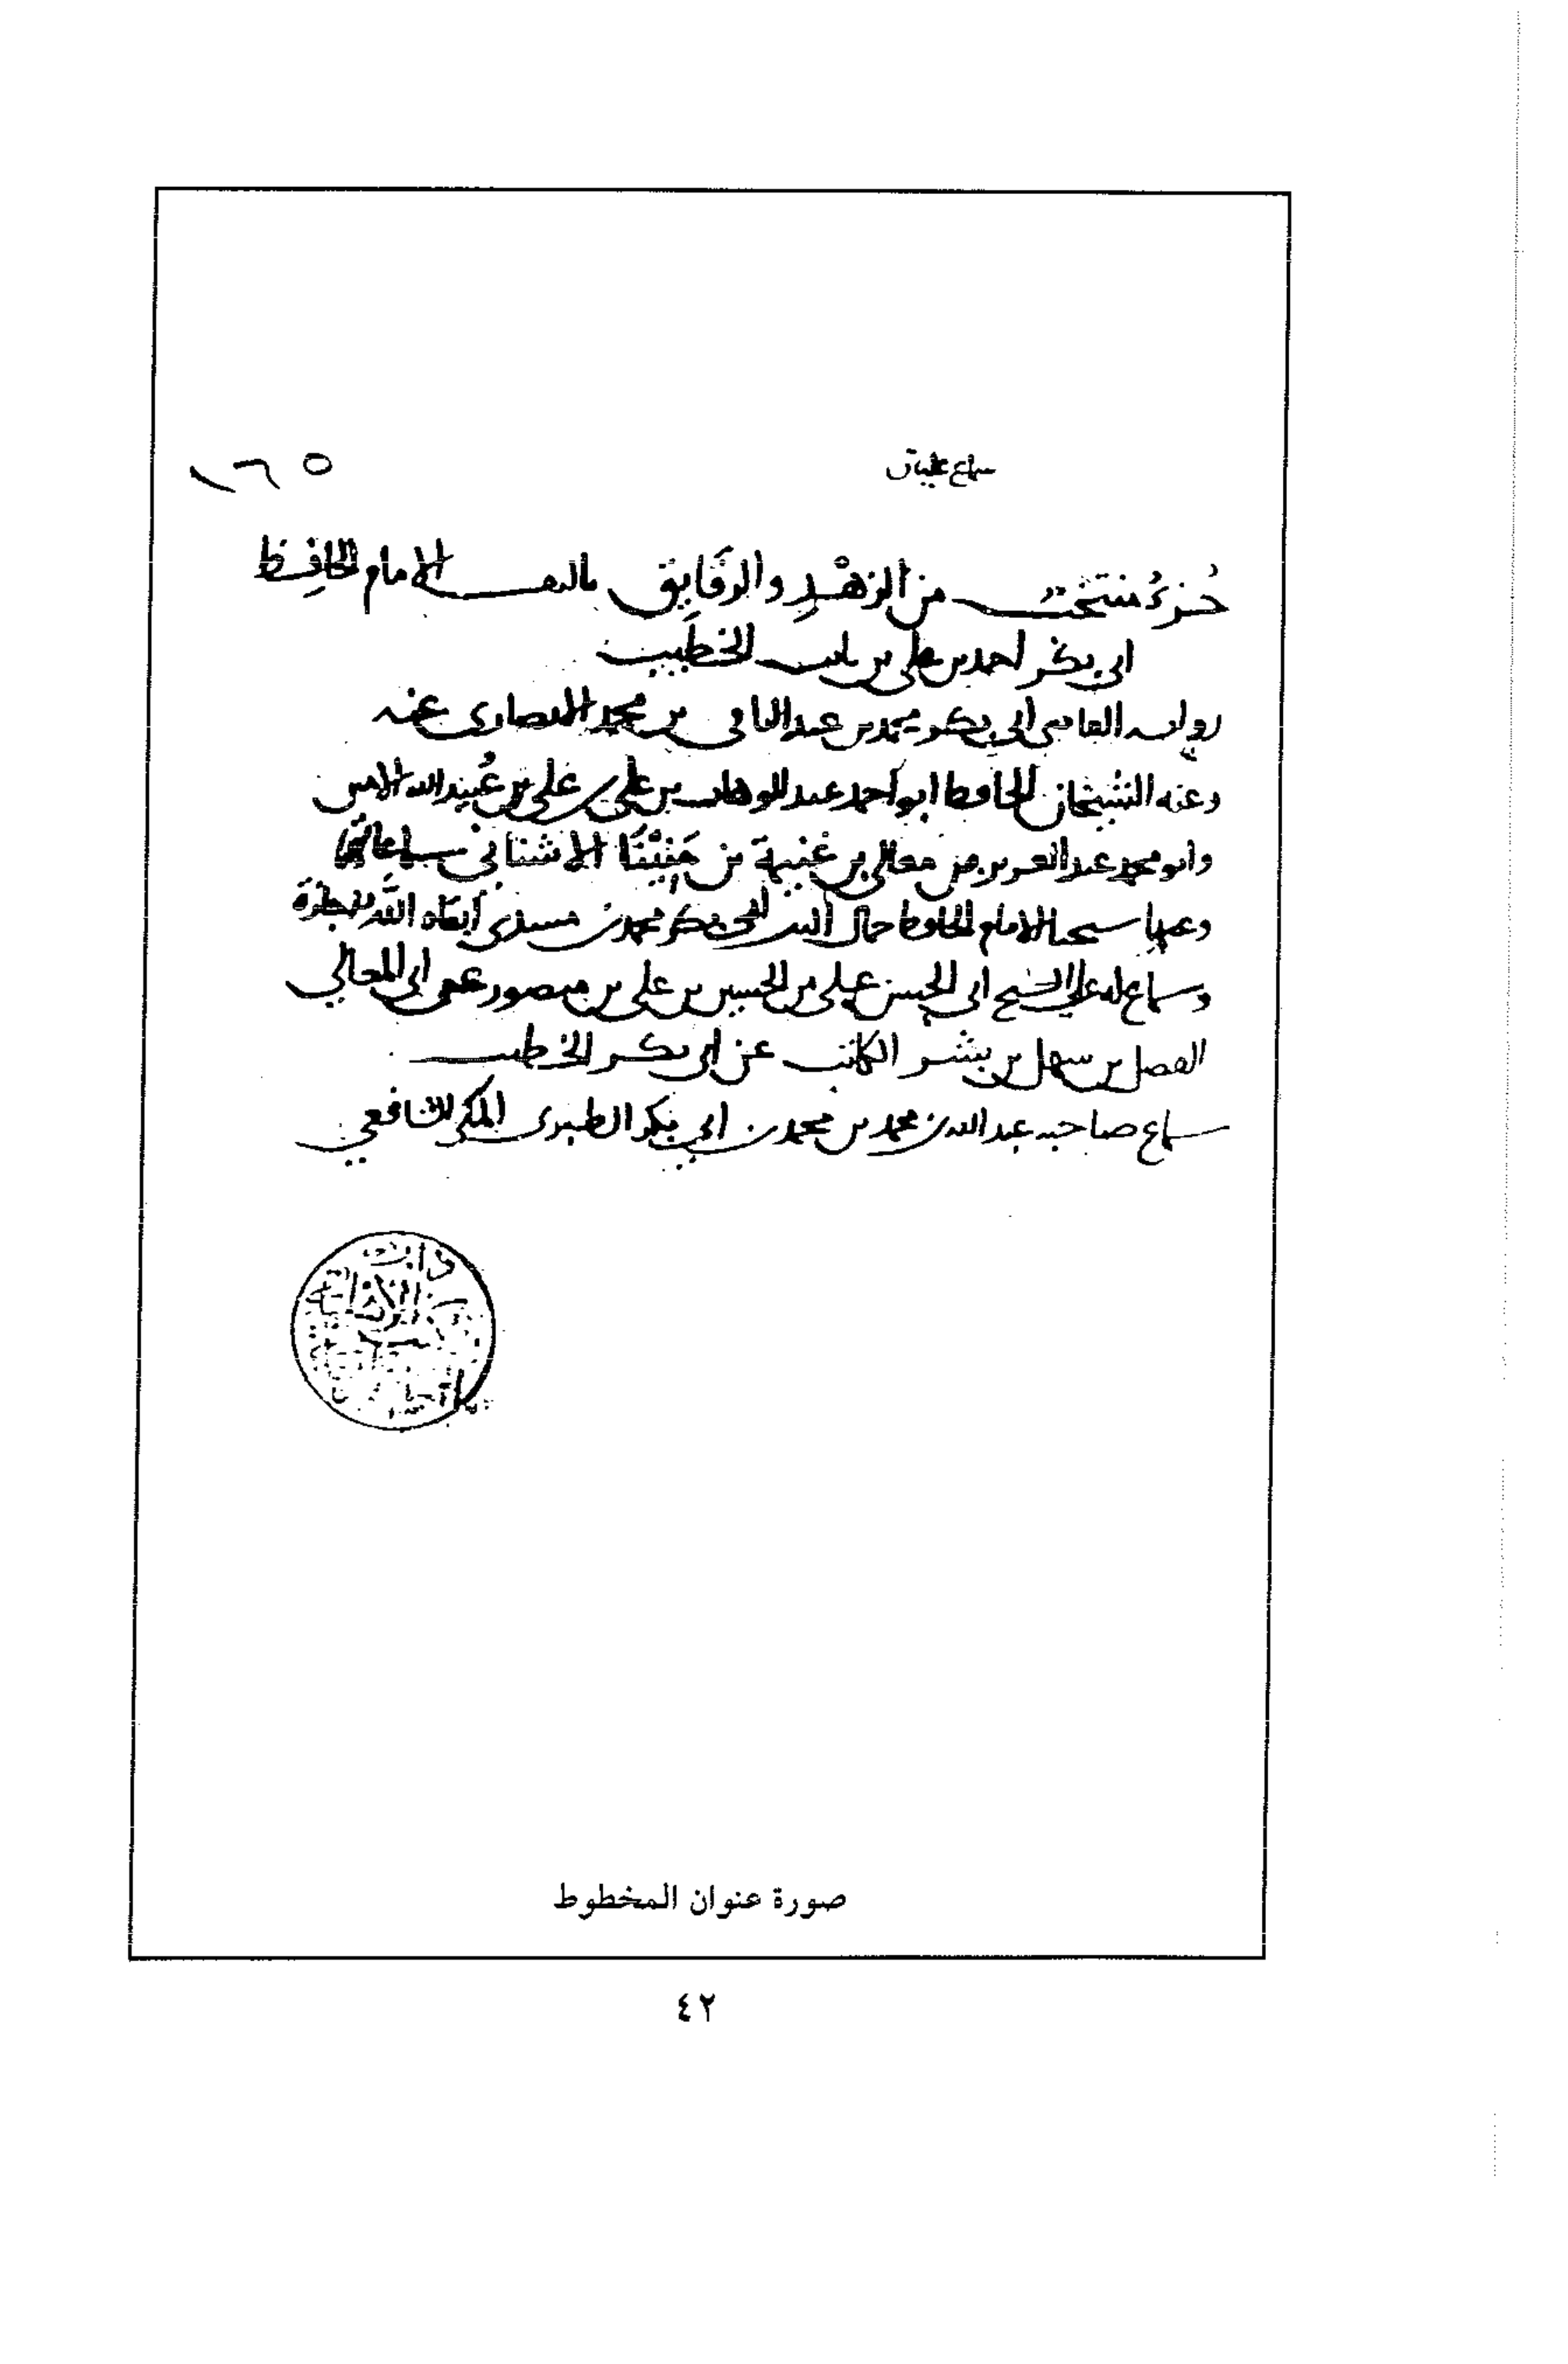 سماع ١٦٥
جُزءٌ منتخب من الزهْدِ والرقَايق تاليف الامام الحافِظ
ابي بكر احمد بن علي بن ثابت الخطيب
رواية القاضي ابي بكر محمد بن عبد الباقي بن محمد الانصاري عنه
وعنه الشيخان الحافظ ابو احمد عبد الوهاب بن علي بن علي بن عُبيد الله الامين
وابو محمد عبد العزيز بن معالي بن غنيمة بن مَنِيْنَا الاشناني سماعا
وعنهما شيخنا الامام الحافظ جمال الدين ابي بكر محمد بن مسدي ابقاه الله اجازة
وسماع له علي الشيخ ابي الحسن علي بن الحسين بن علي بن منصور عن ابي المعالي
الفضل بن سهل بن بشر الكاتب عن ابي بكر الخطيب
سماع صاحبه عبد الله بن محمد بن محمد بن ابي بكر الطبري المكي الشافعي
صورة عنوان المخطوط
٤٢